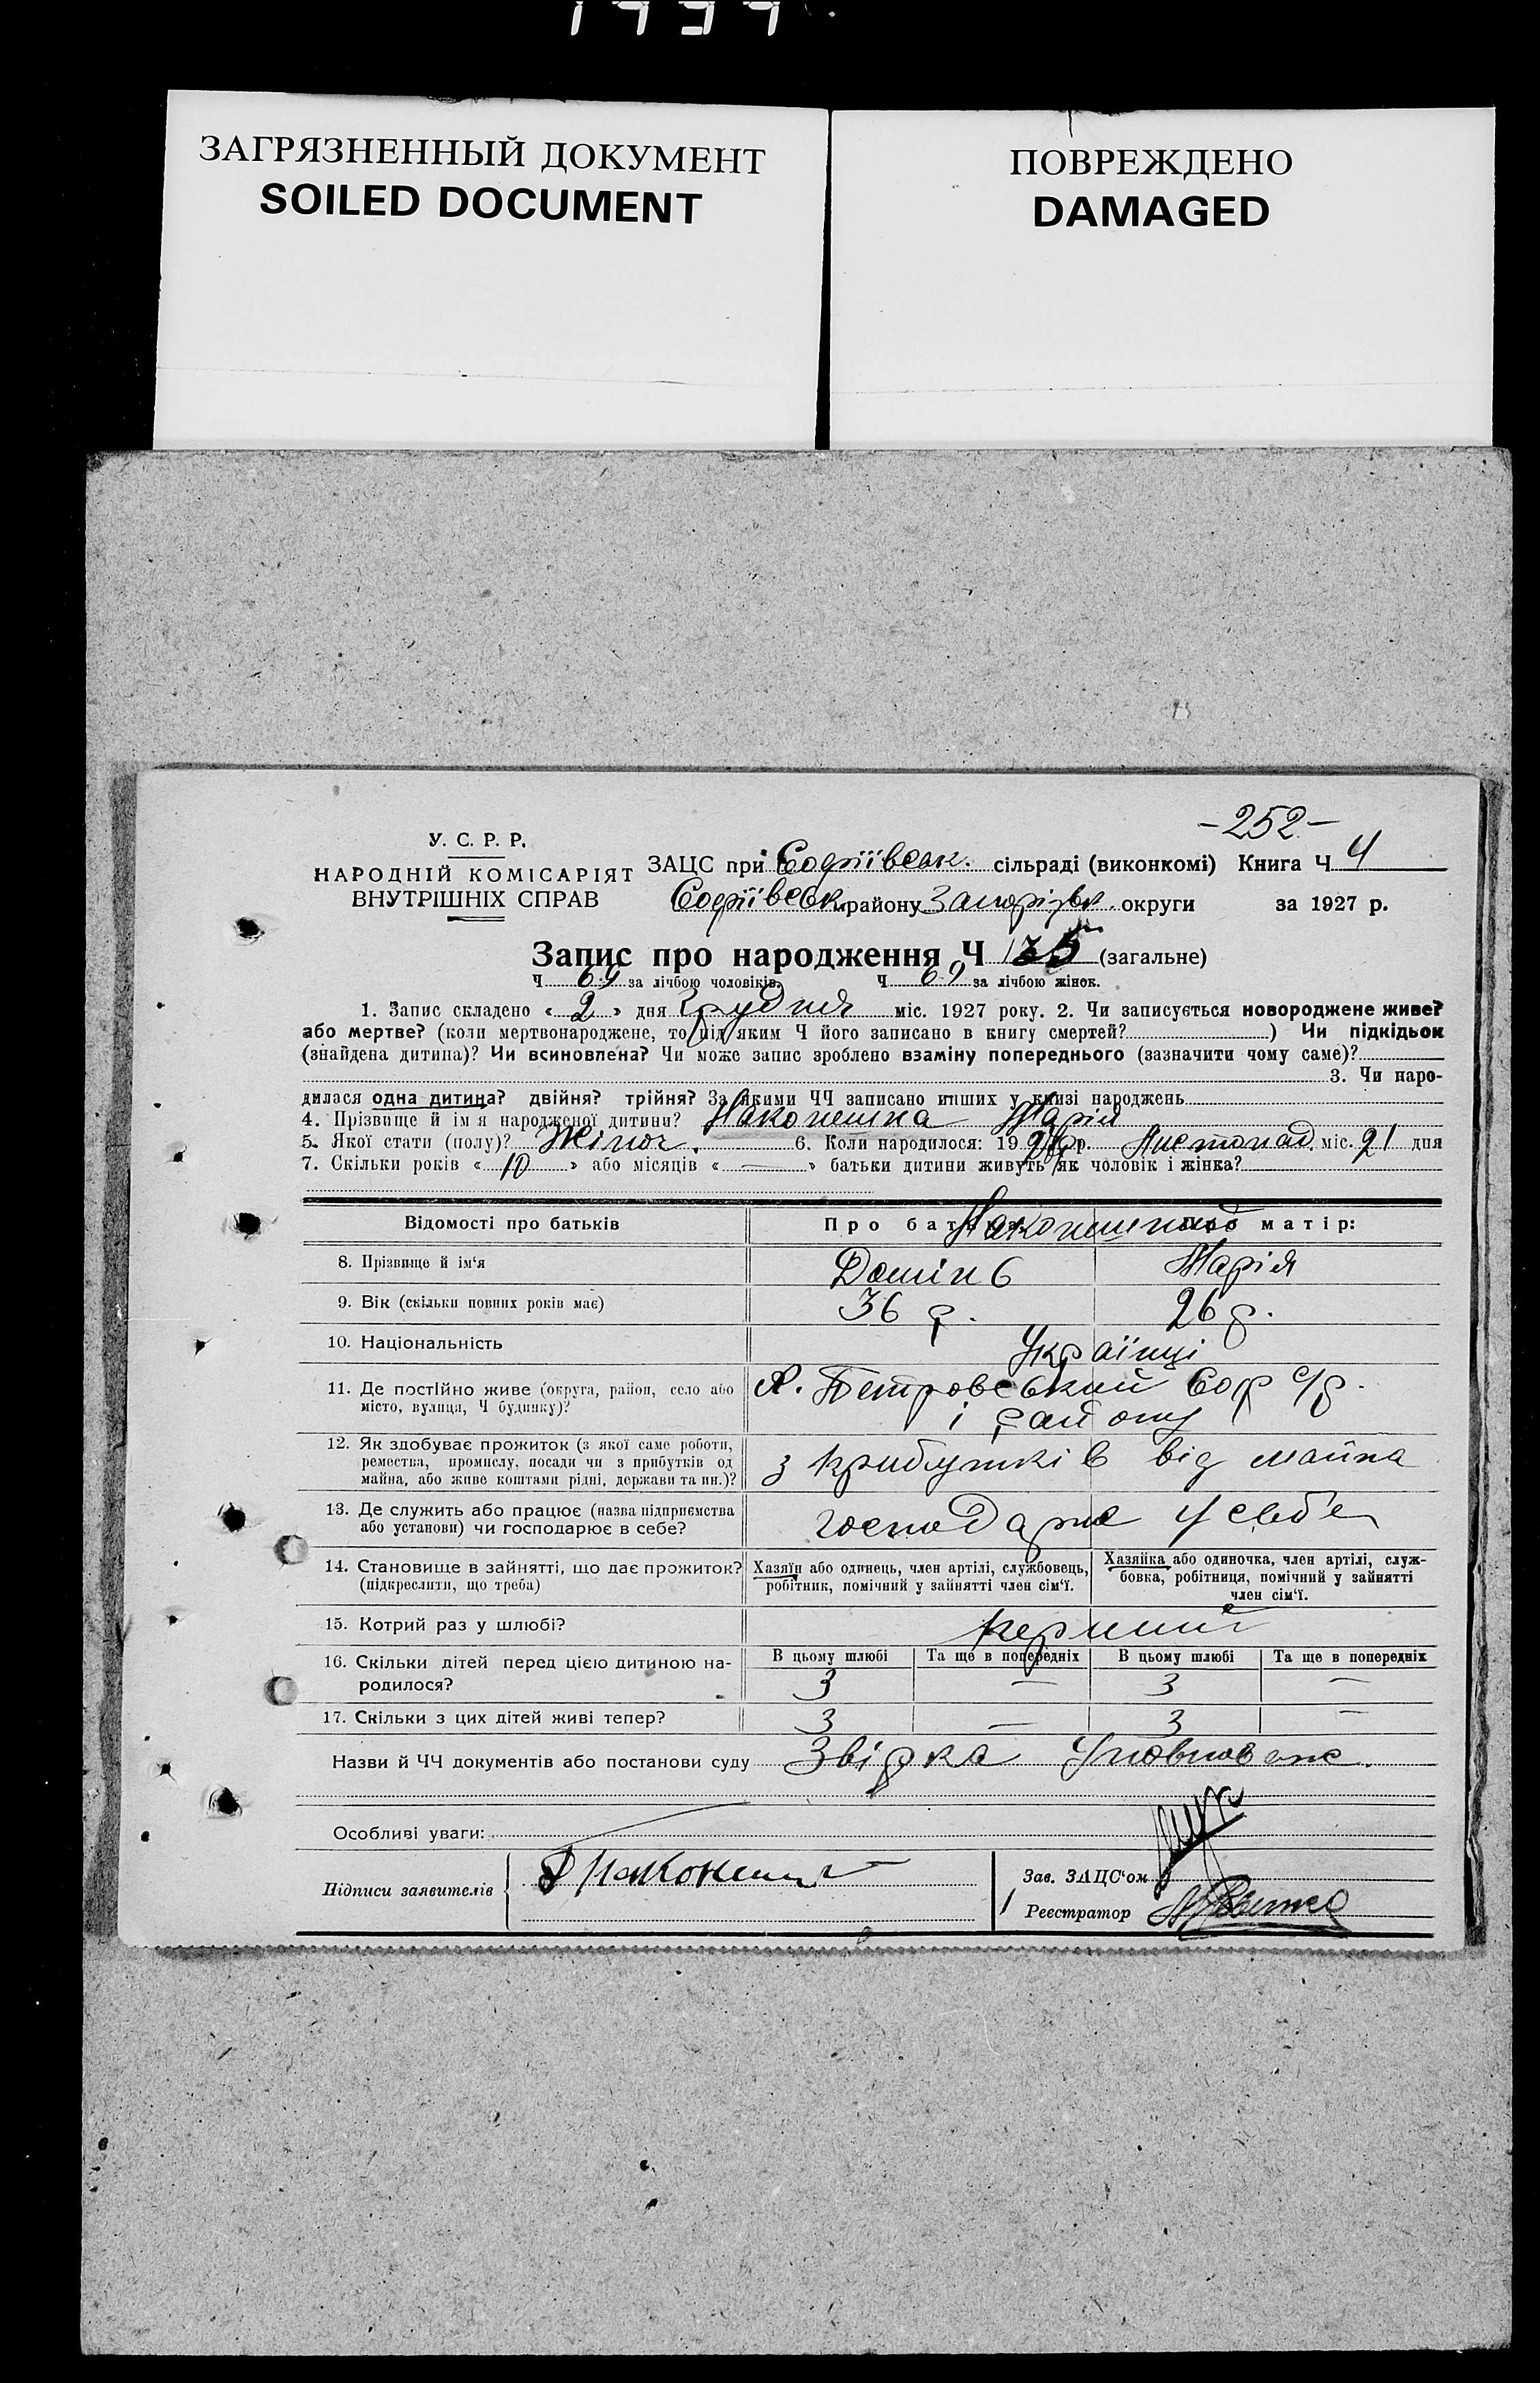 ЗАГРЯЗНЕННЫЙ ДОКУМЕНТ
SOILED DOCUMENT
ПОВРЕЖДЕНО
DAMAGED
-252-
У. С. Р. Р.
НАРОДНІЙ КОМІСАРІЯТ
ВНУТРІШНІХ СПРАВ
ЗАЦС при Софіївськ. сільраді (виконкомі) Книга Ч 4
Софіївськ. району Запорізьк. округи за 1927 р.
Запис про народження Ч 135 (загальне)
Ч 69 за лічбою чоловіків. Ч 69 за лічбою жінок.
1. Запис складено « 2 » дня Грудня міс. 1927 року. 2. Чи записується новороджене живе?
або мертве? (коли мертвонароджене, то під яким Ч його записано в книгу смертей? ) Чи підкідьок
(знайдена дитина)? Чи всиновлена? Чи може запис зроблено взаміну попереднього (зазначити чому саме)?
3. Чи наро-
дилася одна дитина? двійня? трійня? За якими ЧЧ записано инших у книзі народжень
4. Прізвище й ім я народженої дитини? Наконешна Марія
5. Якої стати (полу)? Жіноч. 6. Коли народилося: 19 р. Листопад. міс. 21 дня
7. Скільки років « 10 » або місяців « — » батьки дитини живуть як чоловік і жінка?
Відомості про батьків
Про батька: Про матір:
Наконешні
8. Прізвище й ім‘я
Марія
9. Вік (скільки повних років має)
36 р. 26 р.
10. Національність
Українці
11. Де постійно живе (округа, район, село або
місто, вулиця, Ч будинку)?
Х. Петровський Соф с/р.
і району
12. Як здобуває прожиток (з якої саме роботи,
ремества, промислу, посади чи з прибутків од
майна, або живе коштами рідні, держави та ин.)?
з прибутків від майна
13. Де служить або працює (назва підприємства
або установи) чи господарює в себе?
господарює у себе
14. Становище в зайнятті, що дає прожиток?
(підкреслити, що треба)
Хазяїн або одинець, член артілі, службовець,
робітник, помічний у зайнятті член сім‘ї.
Хазяйка або одиночка, член артілі, служ-
бовка, робітниця, помічний у зайнятті
член сім‘ї.
15. Котрий раз у шлюбі?
перший
16. Скільки дітей перед цією дитиною на-
родилося?
В цьому шлюбі Та ще в попередніх В цьому шлюбі Та ще в попередніх
3 — 3 —
17. Скільки з цих дітей живі тепер?
3 — 3 —
Назви й ЧЧ документів або постанови суду Звірка
Особливі уваги:
Підписи заявителів
Зав. ЗАЦС‘ом
Реєстратор